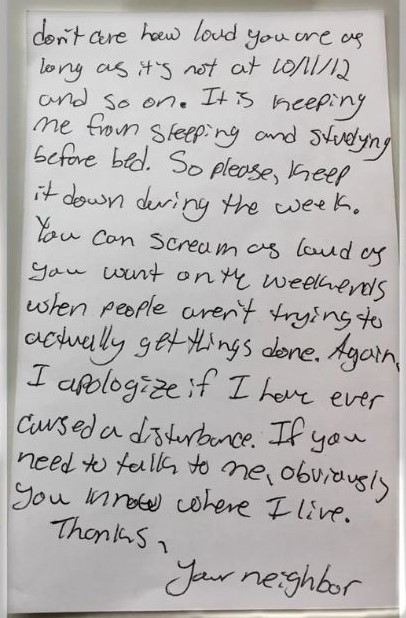 don't care how loud you are as
long as it's not at 10/11/12
and so on. It is keeping
me from sleeping and studying
before bed. So please, keep
it down during the week.
You can scream as loud as
you want on the weekends
when people aren't trying to
actually get things done. Again,
I apologize if I have ever
caused a disturbance. If you
need to talk to me, obviously
you know where I live.
Thanks,
Your neighbor